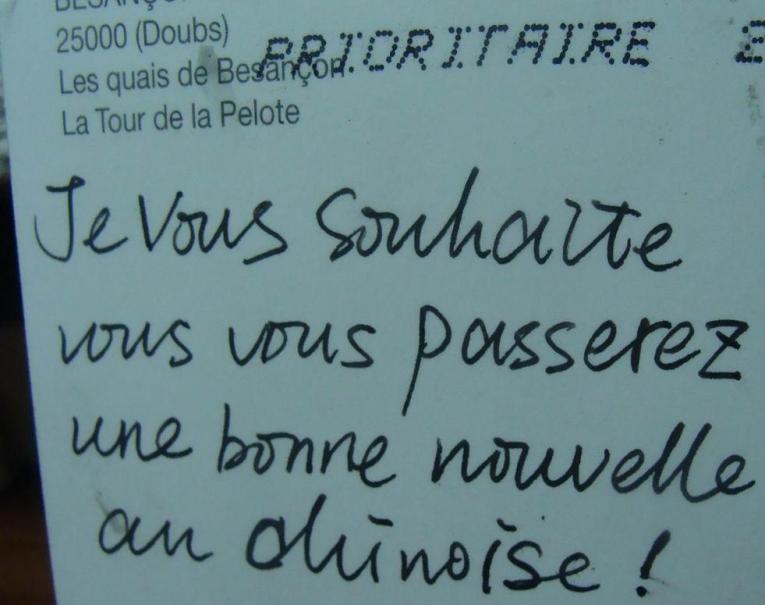 25000 (Doubs)
PRIORITAIRE
Les quais de Besançon
La Tour de la Pelote
Je vous souhaite
vous vous passerez
une bonne nouvelle
an chinoise !